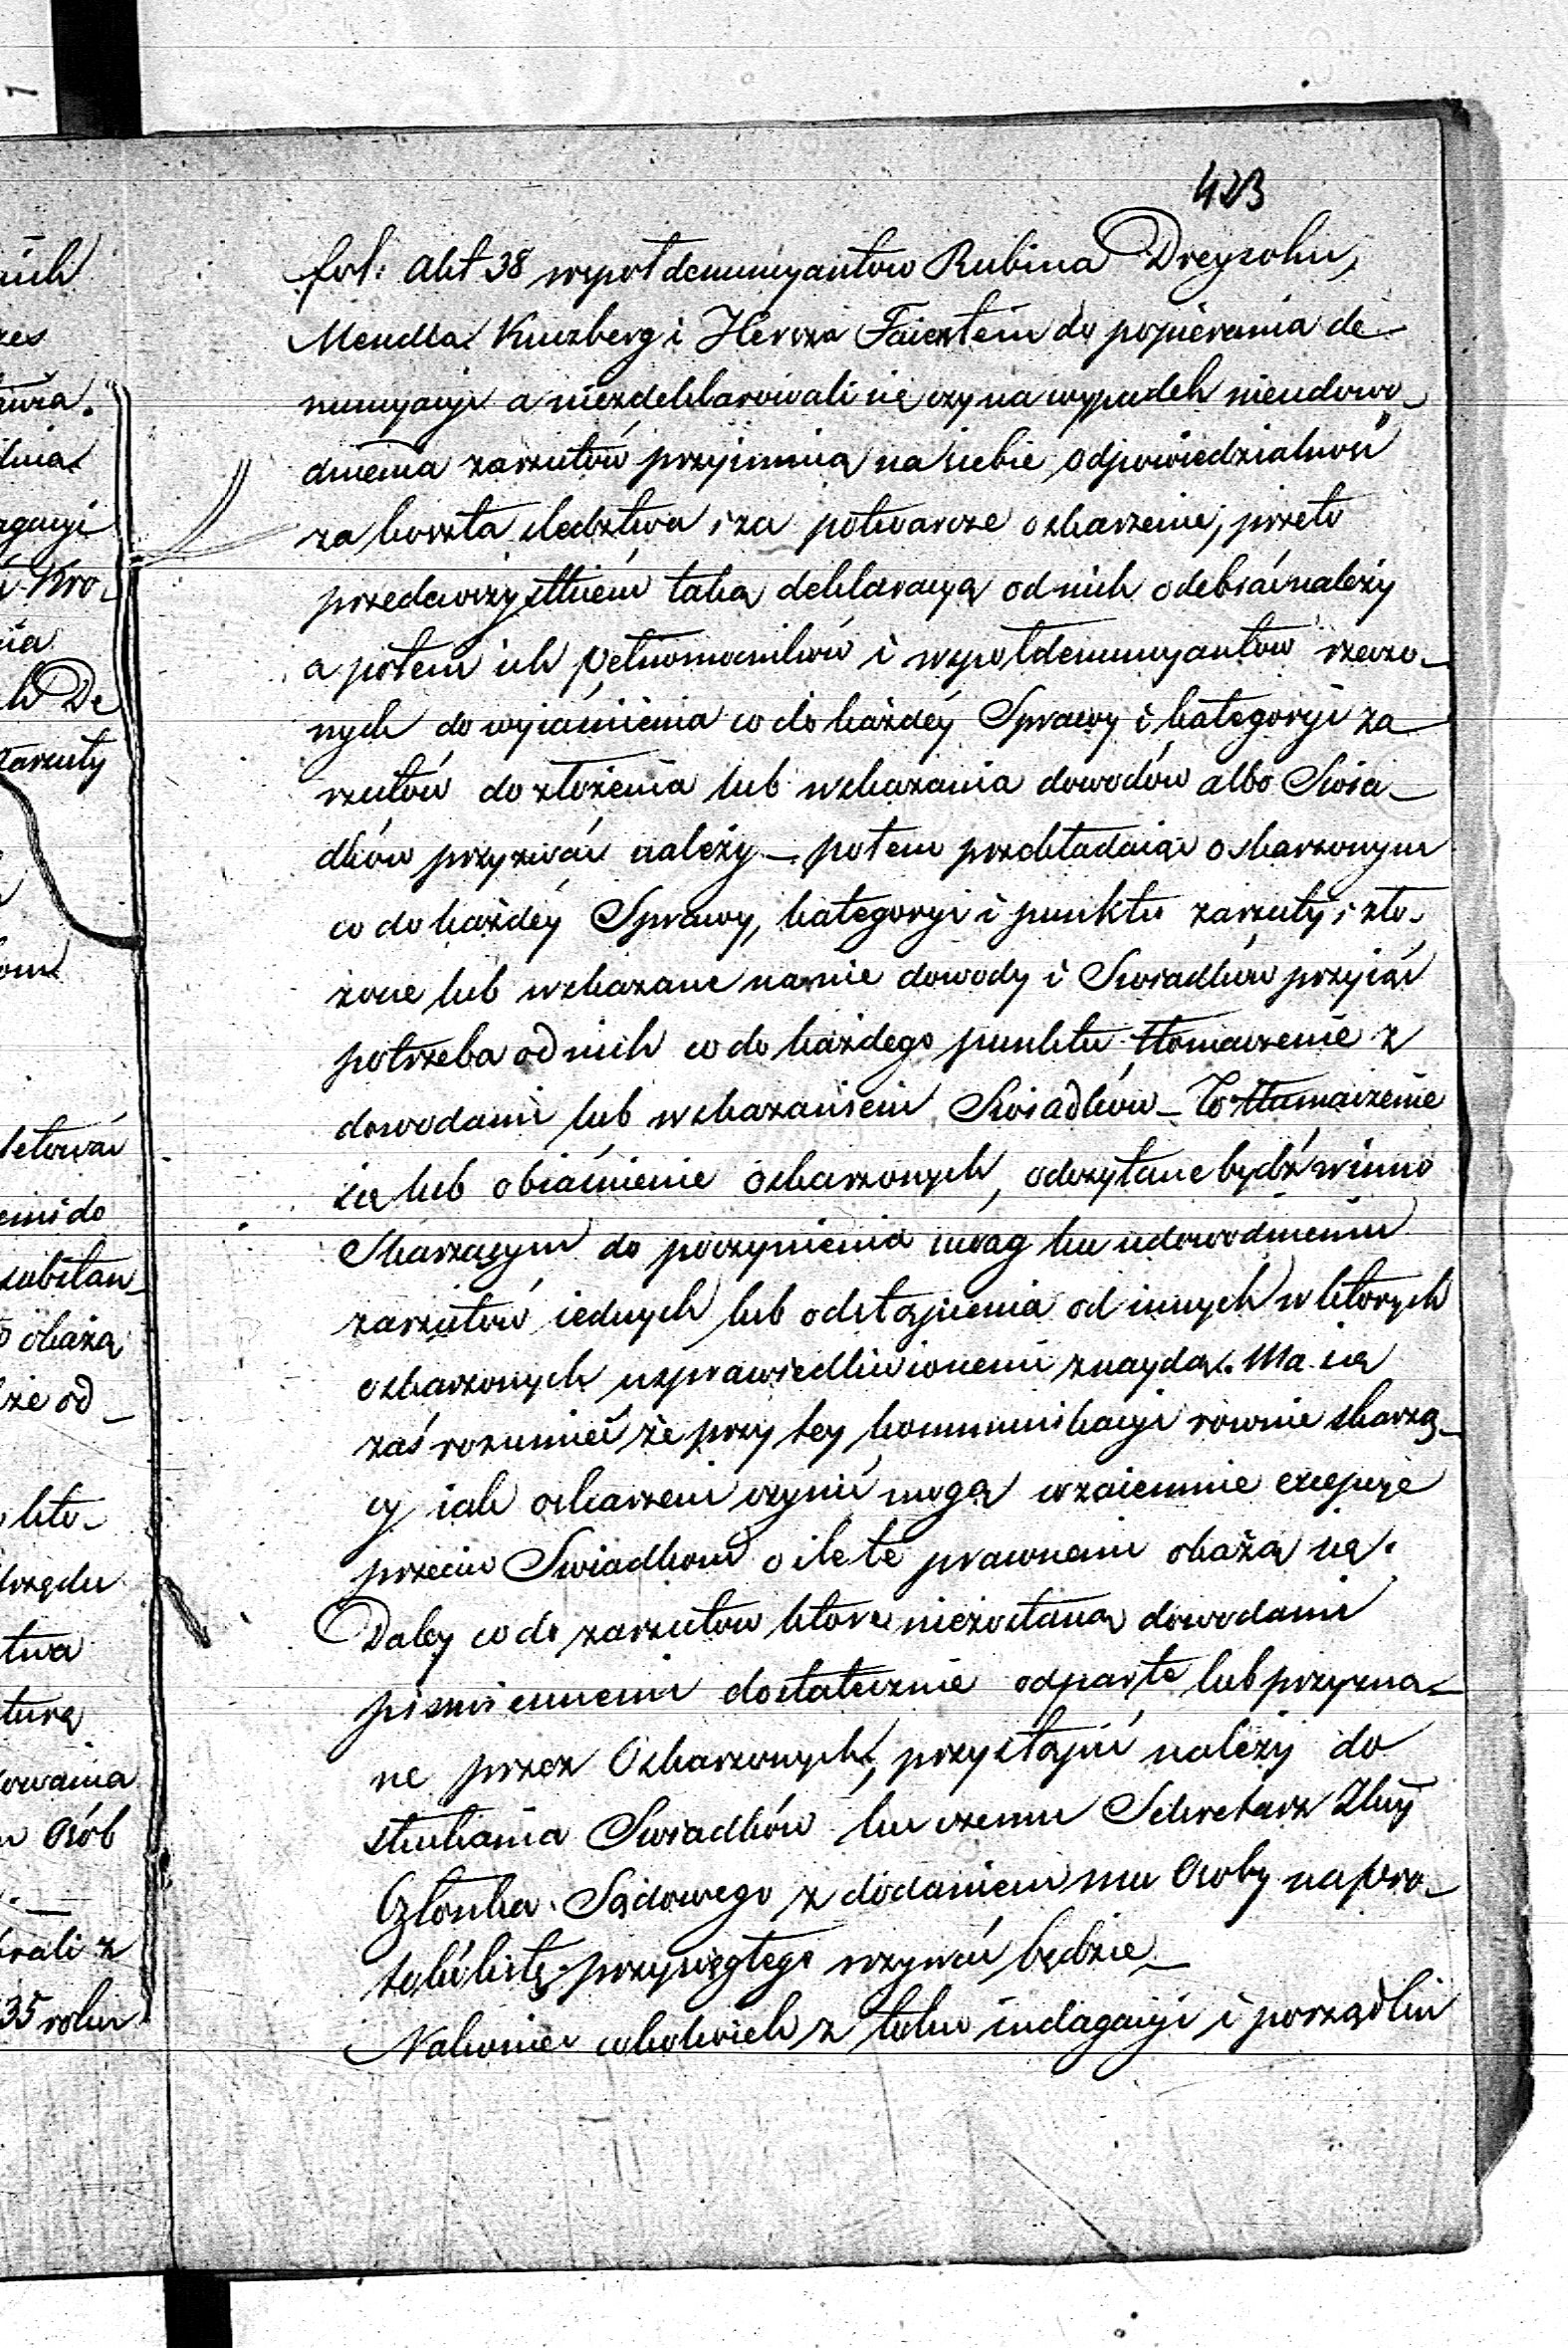 423
fol: akt 38 wspołdenuncyantów Rubina Dreysohn,
Mendla Kinzberg i Hersza Faierstein do popierania de-
nuncyacyi a niezdeklarowali się czy na wypadek nieudowo-
dnienia zarzutów przyimuią na siebie odpowiedzialność
za koszta śledztwa i za potwarcze oskarzenie, przeto
przedewszystkiém taką deklaracyą od nich odebrać należy
a potem ich pełnomocników i wspołdenuncyantów rzeczo-
nych do wyiaśnienia co do każdéy Sprawy i kategoryi za-
rzutów do złożenia lub wskazania dowodów albo Świa-
dków przyzwać należy – potem przekładaiąc oskarzonym
co do każdéy Sprawy, kategoryi i punktu zarzuty i zło-
żone lub wskazane na nie dowody i Świadków przyiąć
potrzeba od nich co do każdego punktu tłomaczenie z
dowodami lub wskazaniem Świadków – To tłumaczenie
się lub obiaśnienie oskarzonych, odczytane bydź winno
Skarzącym do poczynienia uwag ku udowodnieniu
zarzutów iednych lub odstąpienia od innych w których
oskarzonych usprawiedliwionemi znaydą. Ma się
zaś rozumieć że przy tey kommunikacyi równie skarzą-
cy iak oskarzeni czynić mogą wzaiemnie excepcye
przeciw Świadkom o ile te prawnemi okażą się.
Daley co do zarzutów które niezostaną dowodami
pismiennemi dostatecznie odparte lub przyzna-
ne przez Oskarzonych, przystąpić należy do
słuchania Świadków ku czemu Sekretarz
Członka Sądowego z dodaniem mu Osoby na pro-
tokólistę przysięgłego wzywać będzie –
Nakoniec cokolwiek z toku indagacyi i porządku